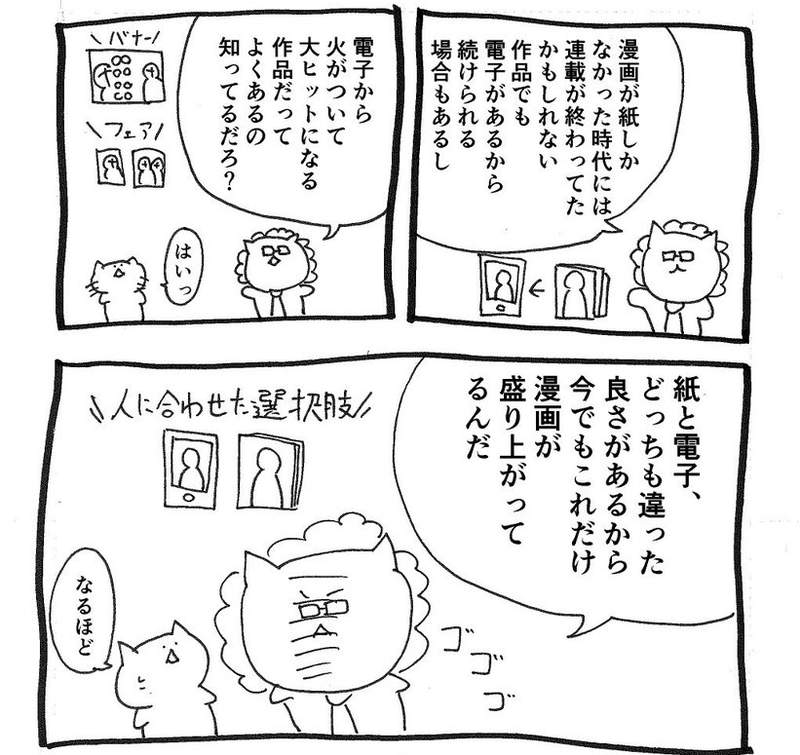 漫画が紙しか
なかった時代には
連載が終わってた
かもしれない
作品でも
電子があるから
続けられる
場合もあるし
電子から
火がついて
大ヒットになる
作品だって
よくあるの
知ってるだろ？
\バナー/
\フェア/
はいっ
紙と電子、
どっちも違った
良さがあるから
今でもこれだけ
漫画が
盛り上がって
るんだ
\\人に合わせた選択肢//
ゴゴゴ
なるほど